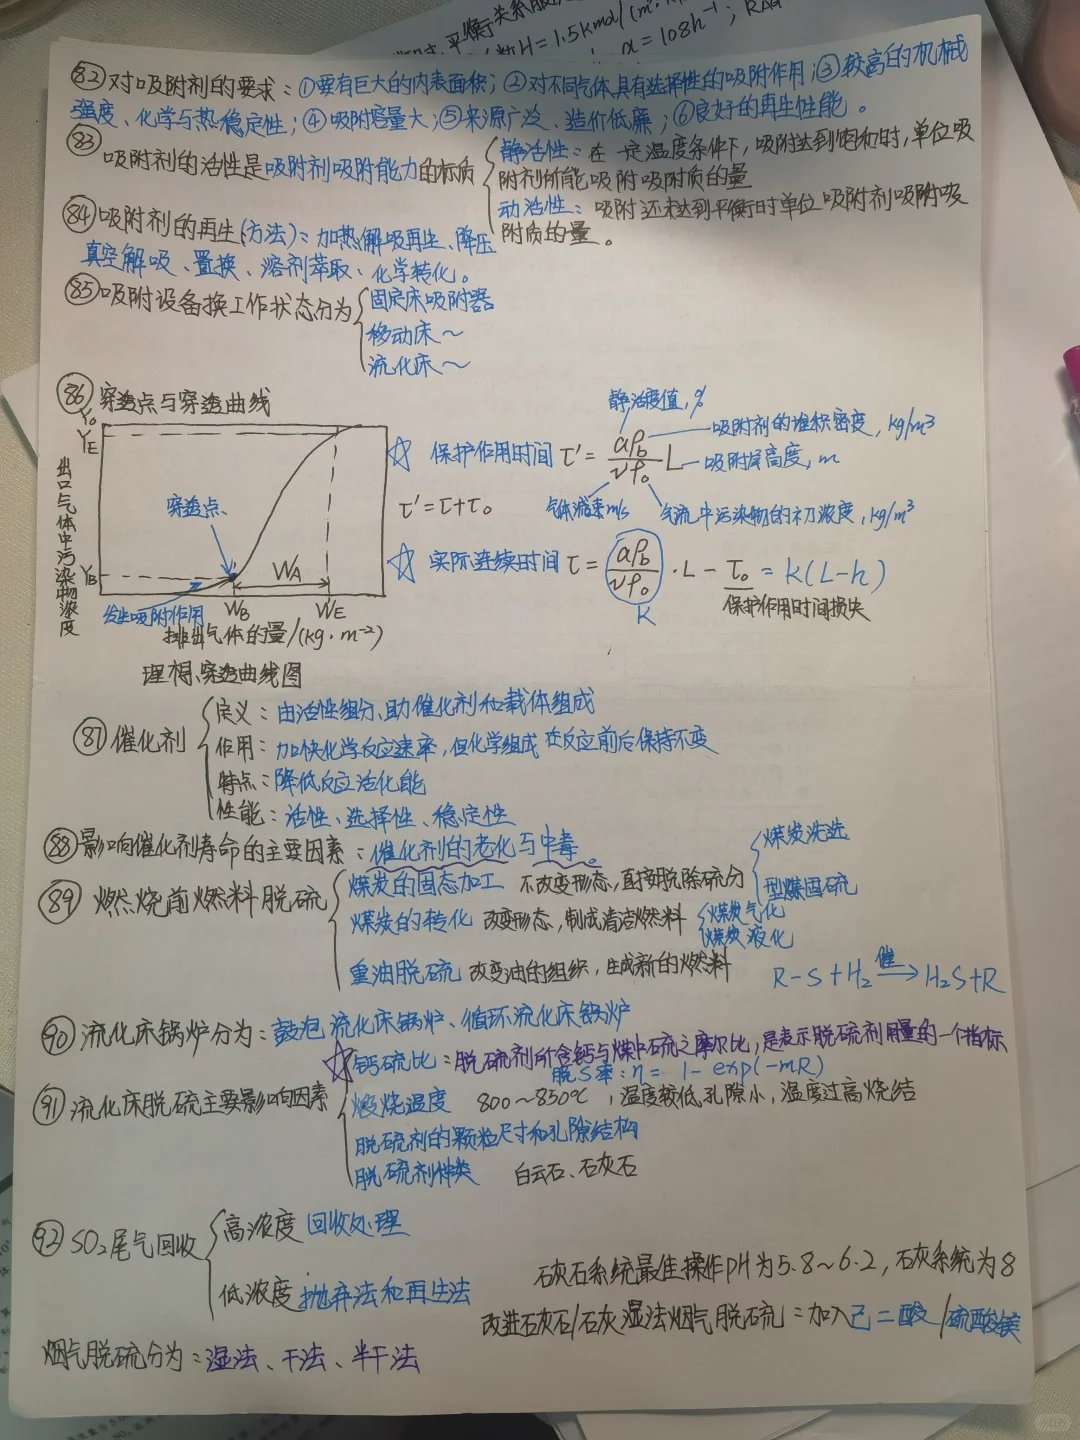 平衡关系服
H=1.5kmol/(m³
α=108h⁻¹;
82 对吸附剂的要求:①要有巨大的内表面积;②对不同气体具有选择性的吸附作用;③较高的机械
强度、化学与热稳定性;④吸附容量大;⑤来源广泛、造价低廉;⑥良好的再生性能。
83 吸附剂的活性是吸附剂吸附能力的标质
静活性:在一定温度条件下,吸附达到饱和时,单位吸
附剂所能吸附吸附质的量
动活性:吸附还未达到平衡时单位吸附剂吸附吸
附质的量。
84 吸附剂的再生(方法):加热解吸再生、降压
真空解吸、置换、溶剂萃取、化学转化。
85 吸附设备换工作状态分为
固定床吸附器
移动床~
流化床~
86 穿透点与穿透曲线
Y₀
Y_E
Y_B
出口气体中污染物浓度
穿透点
发生吸附作用
W_A
W_B
W_E
排出气体的量/(kg·m⁻²)
理想穿透曲线图
静活度值,%
☆ 保护作用时间 τ'= aρb/vρ₀ L
吸附剂的堆积密度,kg/m³
吸附层高度,m
气体流速m/s
气流中污染物的初浓度,kg/m³
τ'=τ+τ₀
☆ 实际连续时间 τ= aρb/vρ₀ ·L-τ₀=K(L-h)
K
保护作用时间损失
87 催化剂
定义:由活性组分、助催化剂和载体组成
作用:加快化学反应速率,但化学组成在反应前后保持不变
特点:降低反应活化能
性能:活性、选择性、稳定性
88 影响催化剂寿命的主要因素:催化剂的老化与中毒。
89 燃烧前燃料脱硫
煤炭的固态加工 不改变形态,直接脱除硫分
煤炭洗选
型煤固硫
煤炭的转化 改变形态,制成清洁燃料
煤炭气化
煤炭液化
重油脱硫 改变油的组织,生成新的燃料
R-S+H₂ 催→ H₂S+R
90 流化床锅炉分为:鼓泡流化床锅炉、循环流化床锅炉
91 流化床脱硫主要影响因素
☆钙硫比:脱硫剂所含钙与煤中硫之摩尔比,是表示脱硫剂用量的一个指标
脱S率:η= 1-exp(-mR)
煅烧温度 800~850℃,温度较低孔隙小,温度过高烧结
脱硫剂的颗粒尺寸和孔隙结构
脱硫剂种类 白云石、石灰石
92 SO₂尾气回收
高浓度 回收处理
低浓度 抛弃法和再生法
石灰石系统最佳操作PH为5.8~6.2,石灰系统为8
改进石灰石/石灰湿法烟气脱硫:加入己二酸/硫酸镁
烟气脱硫分为:湿法、干法、半干法